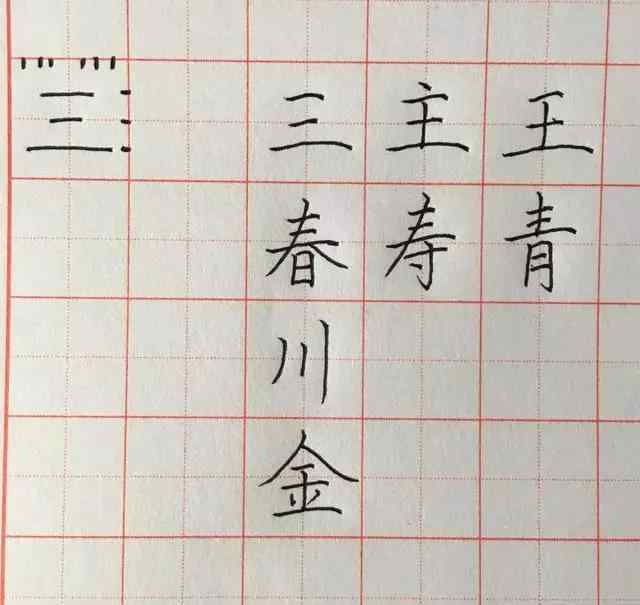 三 三 主 王
春 寿 青
川
金